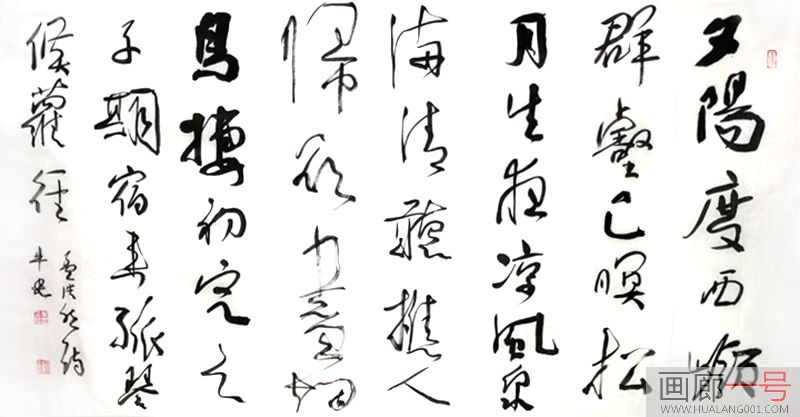 夕陽度西嶺
群壑已暝松
月生夜凉風泉
滿清聽樵人
歸欲盡烟
鳥棲初定之
子期宿來孤琴
候蘿徑
孟浩然詩
画廊一号
WWW.HUALANG001.COM